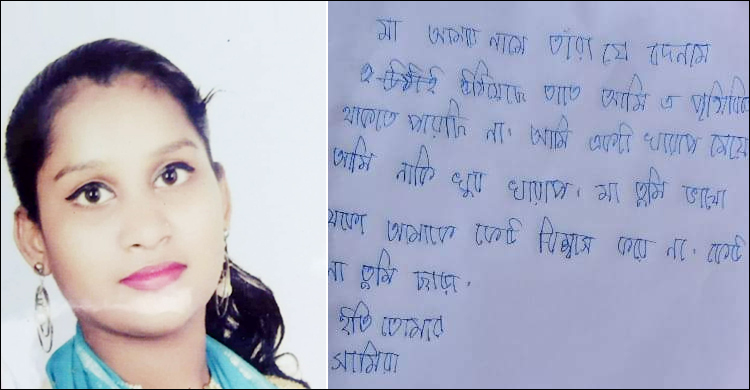 মা আমার নামে তাঁরা যে দেনাম
উঠিয়েছে তাতে আমি এ পৃথিবিতে
থাকতে পারেছি না। আমি একটা খারাপ মেয়ে
আমি নাকি খুব খারাপ। মা তুমি ভালো
থেকো আমাকে কেউ বিশ্বাস করে না। কেউ
না তুমি ছাড়া।
ইতি তোমার
সামিরা